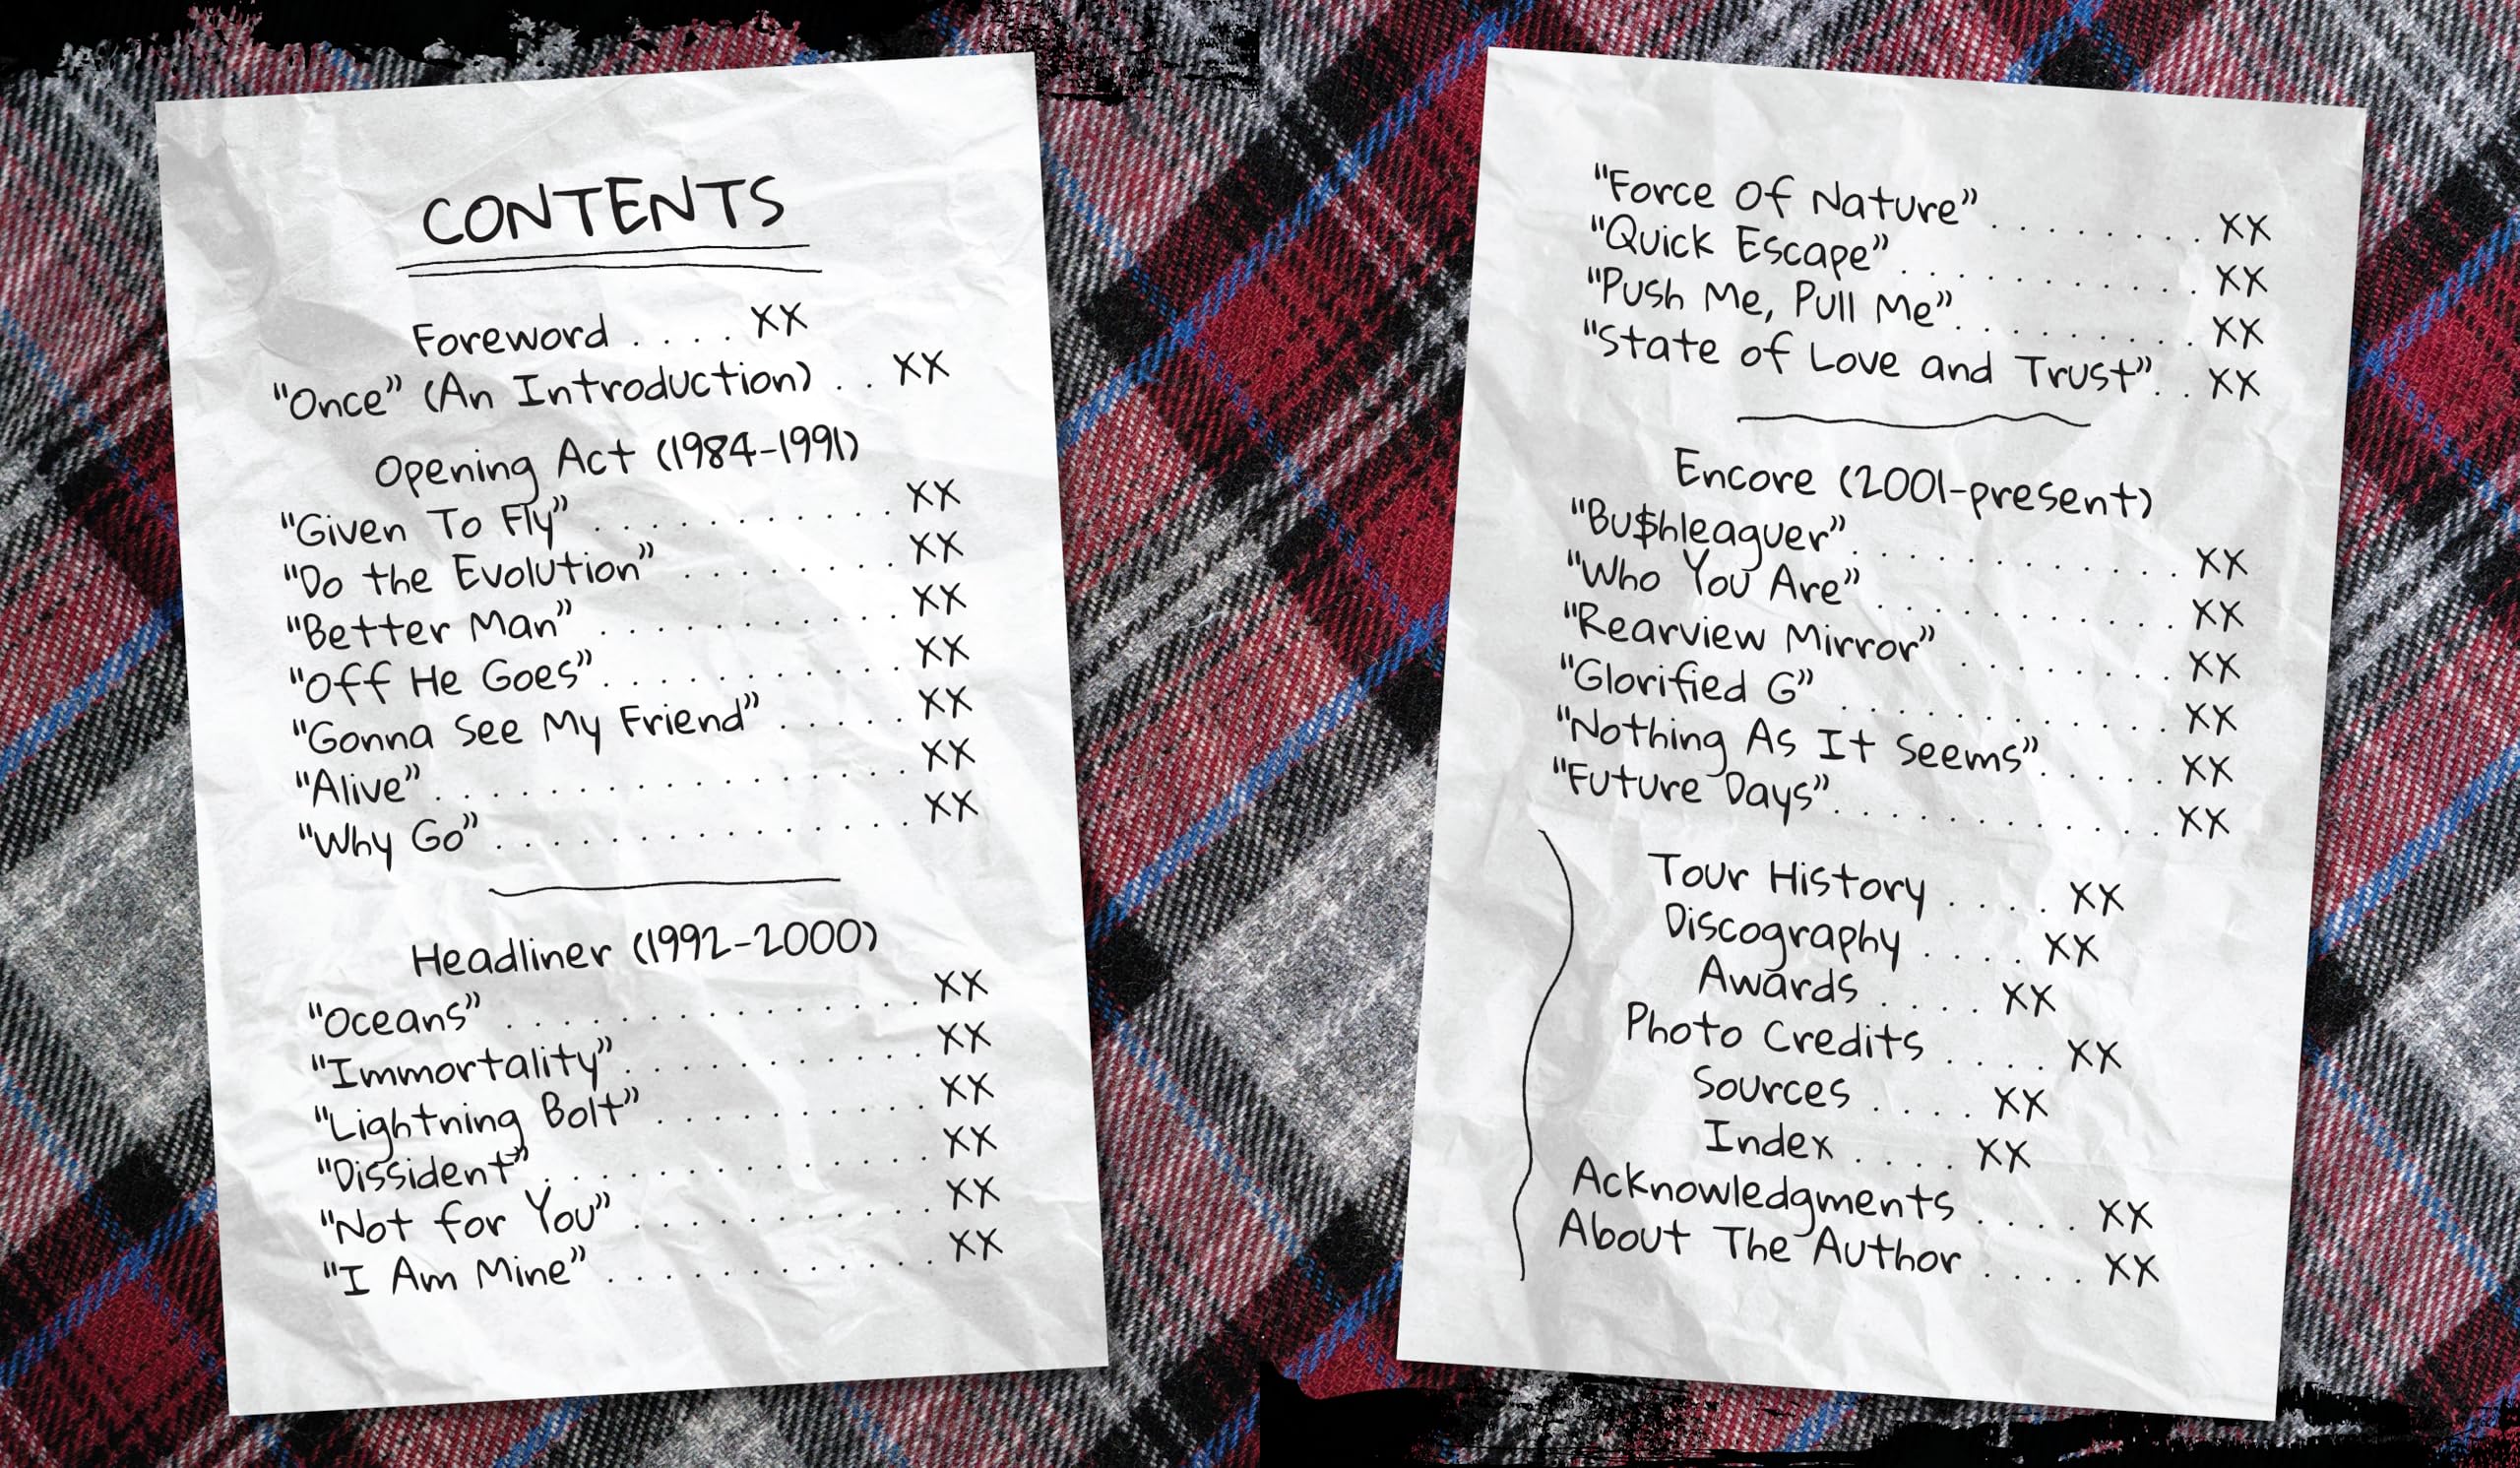 CONTENTS
Foreword . . . . XX
"Once" (An Introduction) . . XX
Opening Act (1984-1991)
"Given To Fly" . . . . . . . . . . . XX
"Do the Evolution" . . . . . . . . XX
"Better Man" . . . . . . . . . . . XX
"Off He Goes" . . . . . . . . . . . XX
"Gonna See My Friend" . . . . . XX
"Alive" . . . . . . . . . . . . . . . XX
"Why Go" . . . . . . . . . . . . . XX
Headliner (1992-2000)
"Oceans" . . . . . . . . . . . . . XX
"Immortality" . . . . . . . . . . XX
"Lightning Bolt" . . . . . . . . . XX
"Dissident" . . . . . . . . . . . . XX
"Not for You" . . . . . . . . . . XX
"I Am Mine" . . . . . . . . . . . . XX
"Force Of Nature" . . . . . . . . XX
"Quick Escape" . . . . . . . . . . . XX
"Push Me, Pull Me" . . . . . . . . . XX
"State of Love and Trust" . . XX
Encore (2001-present)
"Bu$hleaguer" . . . . . . . . . . . . XX
"Who You Are" . . . . . . . . . . . XX
"Rearview Mirror" . . . . . . . . XX
"Glorified G" . . . . . . . . . . . . XX
"Nothing As It Seems" . . . . . XX
"Future Days" . . . . . . . . . . . . XX
Tour History . . . . XX
Discography . . . . XX
Awards . . . . XX
Photo Credits . . . . XX
Sources . . . . XX
Index . . . . XX
Acknowledgments . . . . XX
About The Author . . . . XX